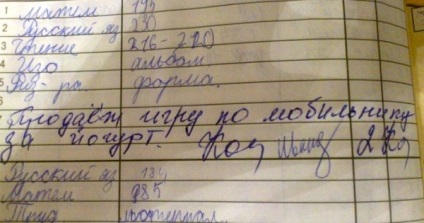 1 матем 195
2 Русский яз 230
3 Чтение 216-220
4 Изо альбом
5 Физ-ра. форма.
6
Продаёт игру по мобильнику
за йогурт.
Русский яз 184
Матем 985
Труд материал